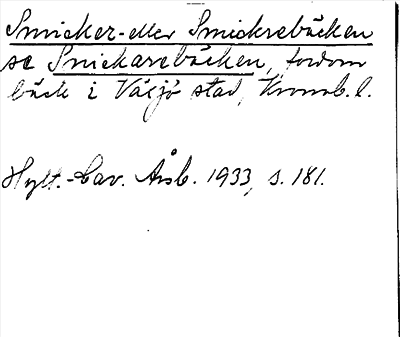 Smicker- eller Smickrebäcken
se Snickarebäcken, fordom
bäck i Växjö stad, Kronob. l.
Hylt.-Cav. Årsb. 1933, s. 181.